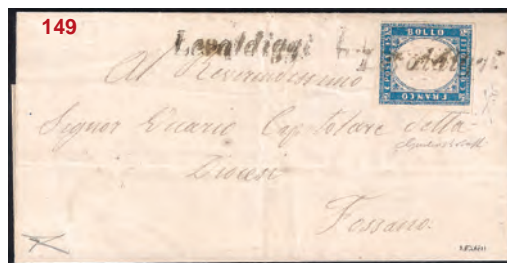 149
Levaldiggi Levaldiggi
BOLLO
FRANCO
Al Reverendissimo
Signor Vicario Capitolare della
Diocesi
Fossano.